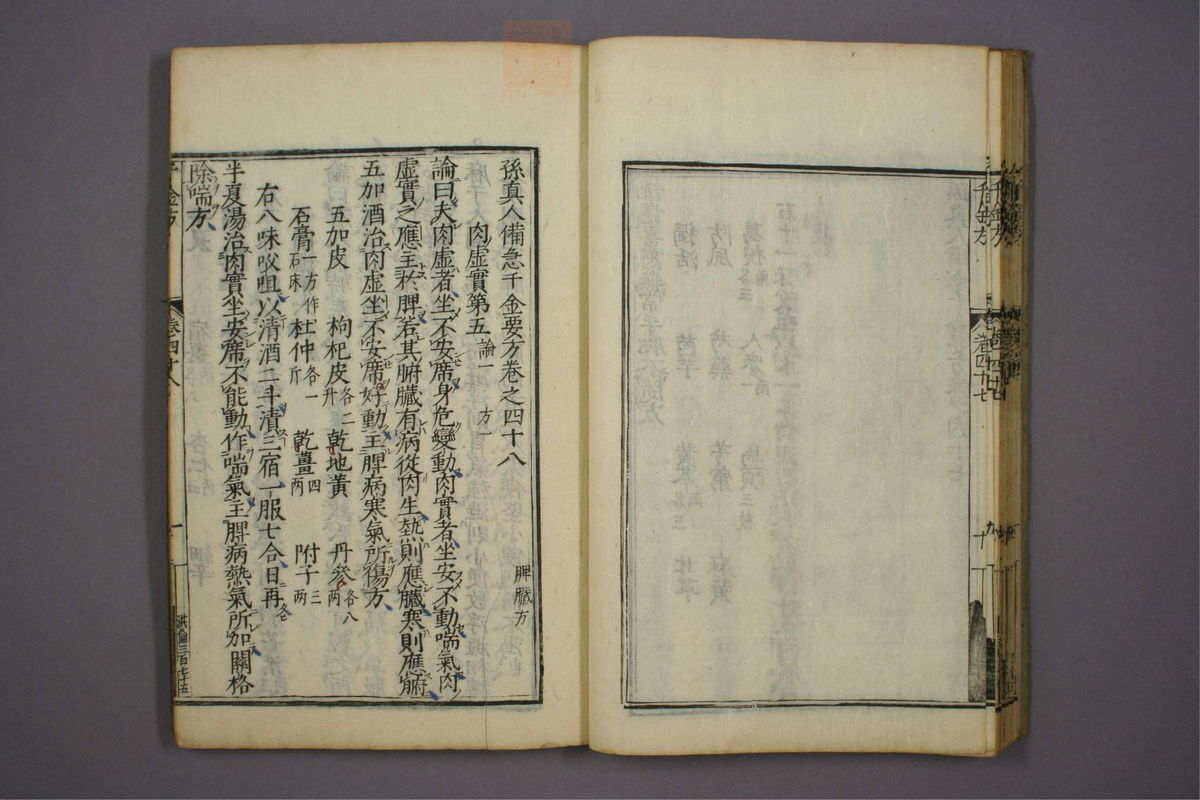 孫真人備急千金要方卷之四十八
脾臓方
肉虛實第五 論一 方一
論曰夫肉虛者坐不安席身危變動肉實者坐安不動喘氣肉
虛實之應主於脾若其腑臓有病從肉生熱則應臓寒則應腑
五加酒治肉虛坐不安席好動主脾病寒氣所傷方
五加皮 枸杞皮各二升 乾地黄 丹參各八兩
石膏一方作石床 杜仲各一斤 乾薑四兩 附子三兩
右八味㕮咀以清酒二斗漬三宿一服七合日再
半夏湯治肉實坐安席不能動作喘氣主脾病熱氣所加關格
除喘方
千金方
卷四十八
一
卷四十七